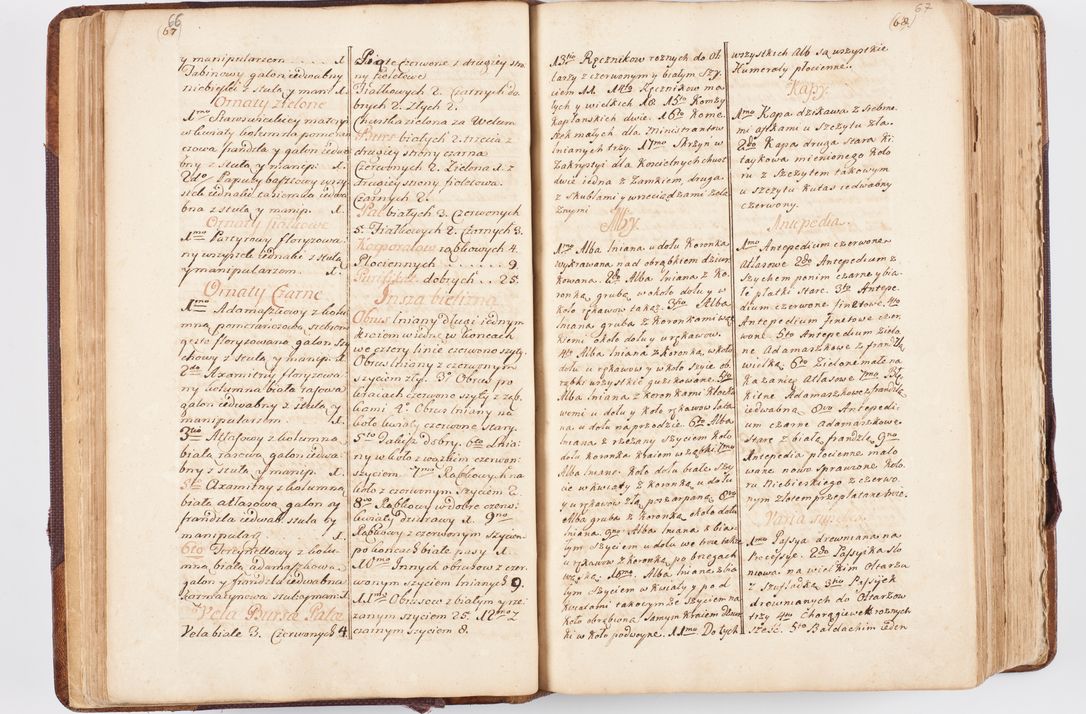 66
67
y manipularzem . . . . . 1.
Tabinowy galon iedwabny
niebieski z stułą y mani: 1.
Ornaty zielone
1mo Staroswieckiey materyi
w kwiaty kolumna pomeran
czowa frandzla y galon iedwa
bny z stułą y manip: 1.
2do Papuży bastowy wszy
stek iednaki tasiemka iedwa
bna z stułą y manip. 1.
Ornaty fiałkowe
1mo Partyrowy floryzowa
ny wszystek iednaki z stułą
y manipularzem. 1.
Ornaty Czarne
1mo Adamaszkowy z kolu
mną pomeranczową srebrem
gęsto floryzowaną galon szy
chowy z stułą y manip: 1.
2do Axamitny floryzowa
ny kolumna biała rasowa
galon iedwabny z stułą y
manipularzem. 1.
3tio Atłasowy z kolumną
białą rasową galon iedwa
bny z stułą y manip. 1.
5to Axamitny z kolumną
białą atłasową galon sy
frandzla iedwab. stuła by
manipularz 1.
6to Tercynellowy z kolu
mną białą adamaszkową
galon y frandzla iedwabna
karmazynowa stuła y mani 1.
Vela Bursa Palae
Vela białe 3. Czerwonych 4.
Piąte czerwone z drugiey stro
ny fioletowe
Fiałkowych 2. Czarnych do
brych 2. Złych 2.
Chustka zielona za Welum
Burs białych 2. trzecia z
drugiey strony czarna
Czerwonych 2. Zielona 1. z
drugiey strony fioletowa.
Czarnych 2.
Pal białych 3. Czerwonych
5. Fiałkowych 2. Czarnych 3.
Korporałow rąbkowych 4.
Płociennych . . . . . 9.
Puryfikat. dobrych . . 25.
Insza bielizna
Obrus lniany długi iednym
krciem wiednę w koncach
we cztery linie czerwono szyty.
Obrus lniany z czerwonym
szyciem zły. 3. Obrus po
kraiach czerwono szyty z ząb
kami 4. Obrus lniany na
około kwiaty czerwone stary.
5to Dłuższ dobry. 6to Lnia
ny w koło z wązkim czerwon:
szyciem. 7mo Rąbkowy, h na
koło z czerwonym szyciem 2.
8vo Rąbkowy w dobre czerw:
kwiaty dziurawy 1. 9no
Rąbkowy z czerwonym szyciem
po koncach białe pasy 1.
10mo Innych obrusow z czer
wonym szyciem lnianych 9.
11mo Obrusow z białym y rze
zanym szyciem 25. 12mo Z
czarnym szyciem 8.
67
68
13tio Ręcznikow roznych do Oł
tarzy z czerwonym y białym szy
ciem 11. 14to Ręcznikow ma
łych y wielkich 18. 15to Komzy
kapłanskich dwie. 16to Kome
żek małych dla Ministrantow
lnianych trzy. 17mo Skrzyn w
Zakrystyi dla Koscielnych chust
dwie iedna z zamkiem, druga
z Skublami y wrzeciądzami żela
znymi
Alby
1mo Alba lniana u dołu Koronka
wykrawana nad obrąbkiem dziur
kowana. 2do Alba lniana z ko
ronką grubą w około dołu y w
koło rękawow taką. 3tio Alba
lniana gruba z koronkami wąz
kiemi około dołu y u rękawow.
4to Alba lniana z koronką w koło
dołu u rękawow y w koło szyie ob
rąbki wszystkie guzikowane. 5to
Alba lniana z koronkami klocko
wemi u dołu y koło rękawow łata
na u dołu na przodzie. 6to Alba
lniana z rzezany szyciem koło
dołu koronka kraiem w ząbki. 7mo
Alba lniana koło dołu białe szy
cie w kwiaty z koronką u dołu
y u rękawow zła podarpana. 8vo
Alba gruba z koronką około dołu
lniana. 9no Alba lniana z bia
łym szyciem u dołu we troie także
u rękawow z koronką, po brzegach
wązką. 10mo. Alba lniana z bia
łym szyciem w kwiaty y pod
kwiatami takowymże szyciem na
koło obrębiona samym kraiem dziur
ki w koło podwoyne. 11mo Do tych
wszystkich Alb są wszystkie
Humerały płocienne.
Kapy
1mo Kapa dzikawa z srebrne
mi aftkami u szczytu zła.
2do Kapa druga stara ki
taykowa mienionego kolo
ru z szczytem takowym
u szczytu kutas iedwabny
czerwony.
Antepedia
1mo Antepedium czerwone
Atłasowe 2do Antepedium z
szychem ponim czarne y bia
łe płatki stare. 3tio Antepe
dium czerwone finetowe. 4to
Antepedium finetowe czer
wone. 5to Antepedium Zielo
ne Adamaszkowe z frandzlą
wielką. 6to Zielone małe na
Kazanicę Atłasowe 7mo Błę
kitne Adamaszkowe z frandzlą
iedwabną 8vo Antepedi
um czarne Adamaszkowe
stare z białą frandzlą. 9no
Antepedia płocienne malo
wane nowo sprawione kolo
ru Niebieskiego z czerwo
nym złotem przeplatane troie.
Varia supellex
1mo Passya drewniana na
Processye. 2do Passyika sło
niowa na wielkim Ołtarzu
z szufladką 3tio Passyiek
drewnianych do Ołtarzow
trzy 4to Chorągiewek roznych
szesć. 5to Baldachim ieden